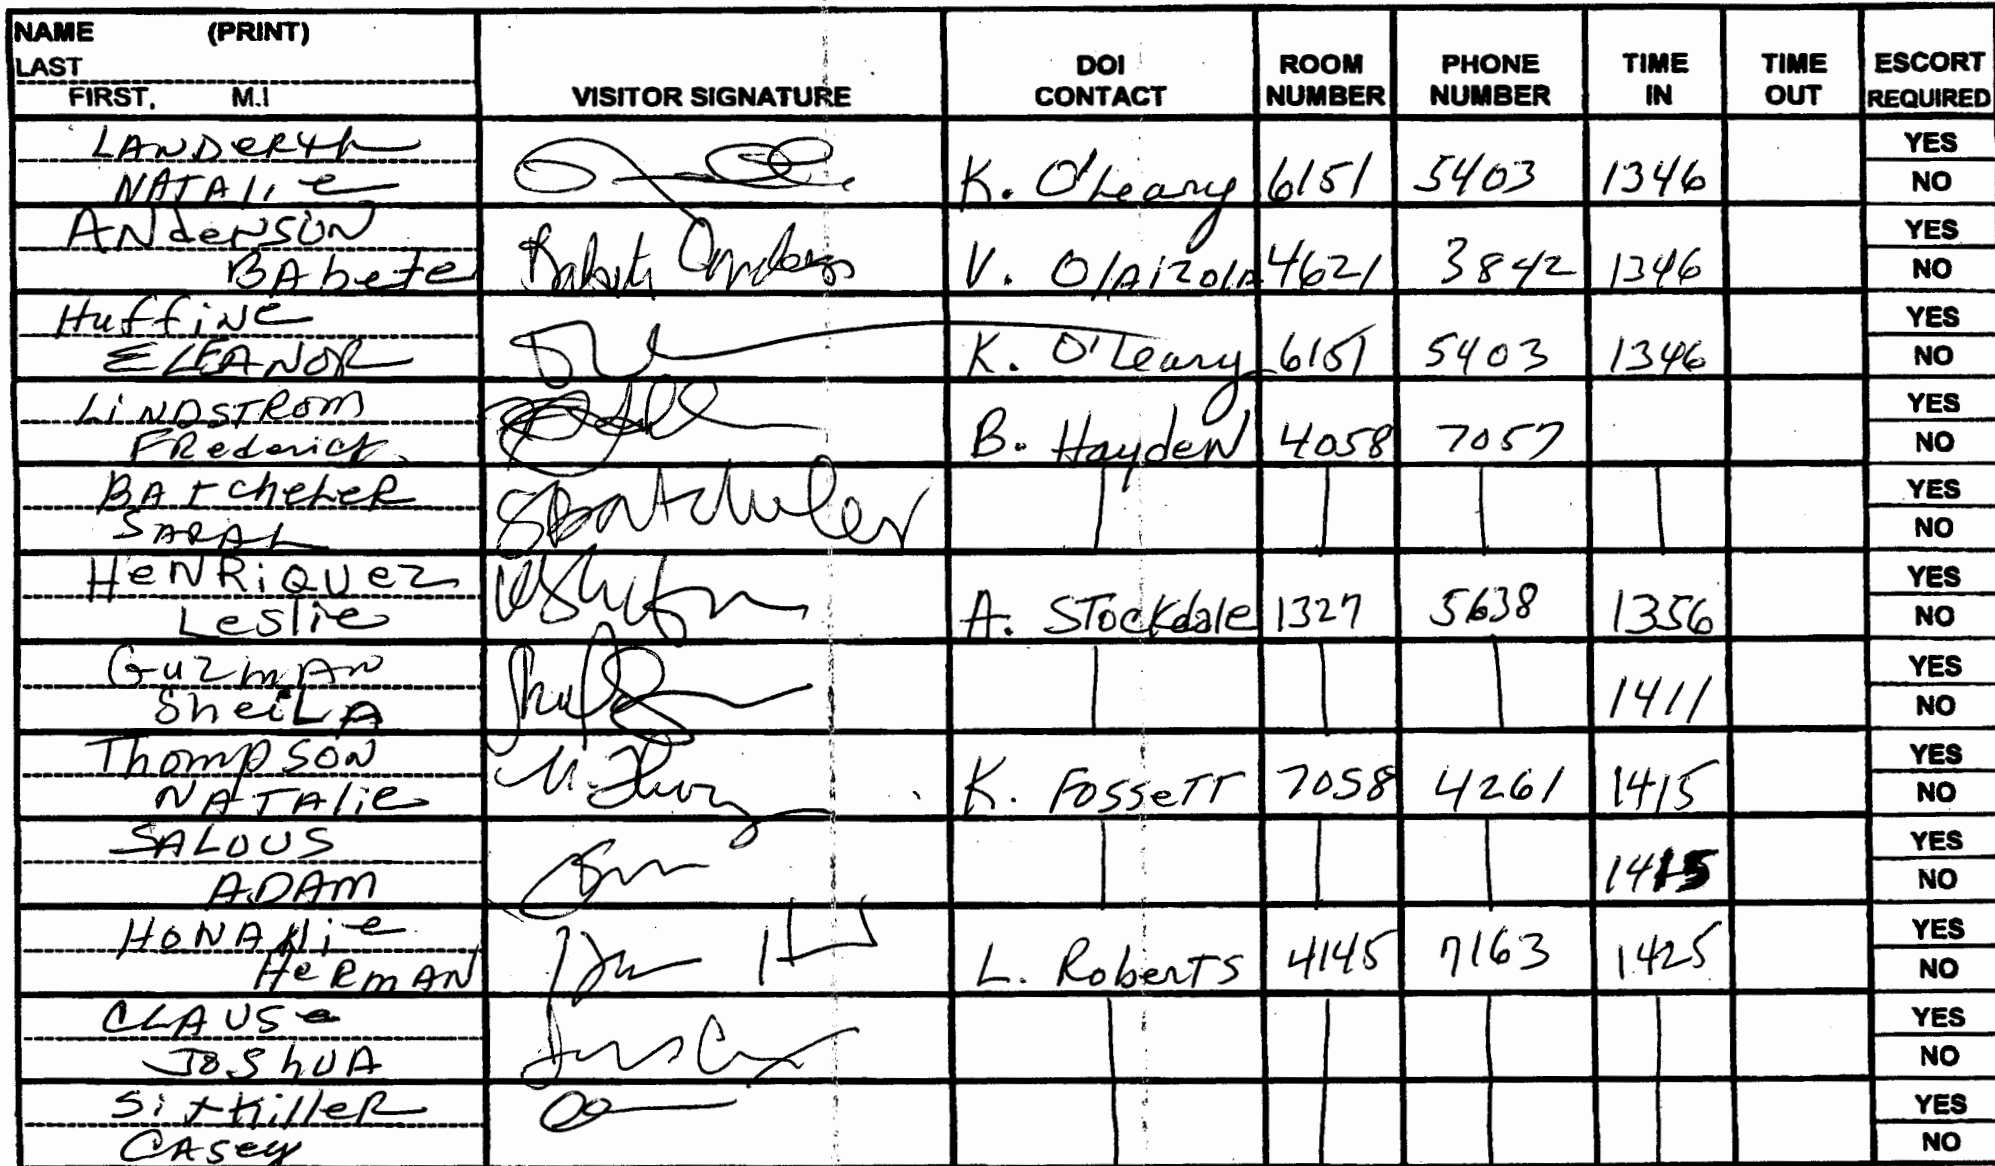 NAME (PRINT)
LAST
FIRST, M.I
VISITOR SIGNATURE
DOI CONTACT
ROOM NUMBER
PHONE NUMBER
TIME IN
TIME OUT
ESCORT REQUIRED
LANDERYh
NATALie K. O'Leary 6151 5403 1346 YES NO
ANdeRSON
BAbete V. OlAizolA 4621 3842 1346 YES NO
HuffiNe
ELEANOR K. O'Leary 6151 5403 1346 YES NO
LiNDSTROM
FRederick B. HaydeN 4058 7057 YES NO
BATcheLeR
SARAh SBatcheler YES NO
HeNRiQUez
Leslie A. STockdale 1327 5638 1356 YES NO
GuzmAN
SheiLA 1411 YES NO
ThompSON
NATAlie K. FOSSeTT 7058 4261 1415 YES NO
SALOUS
ADAM 1415 YES NO
HONANie
HeRmAN L. RobeRTS 4145 7163 1425 YES NO
CLAUSe
JOShUA YES NO
SixKilleR
CASey YES NO